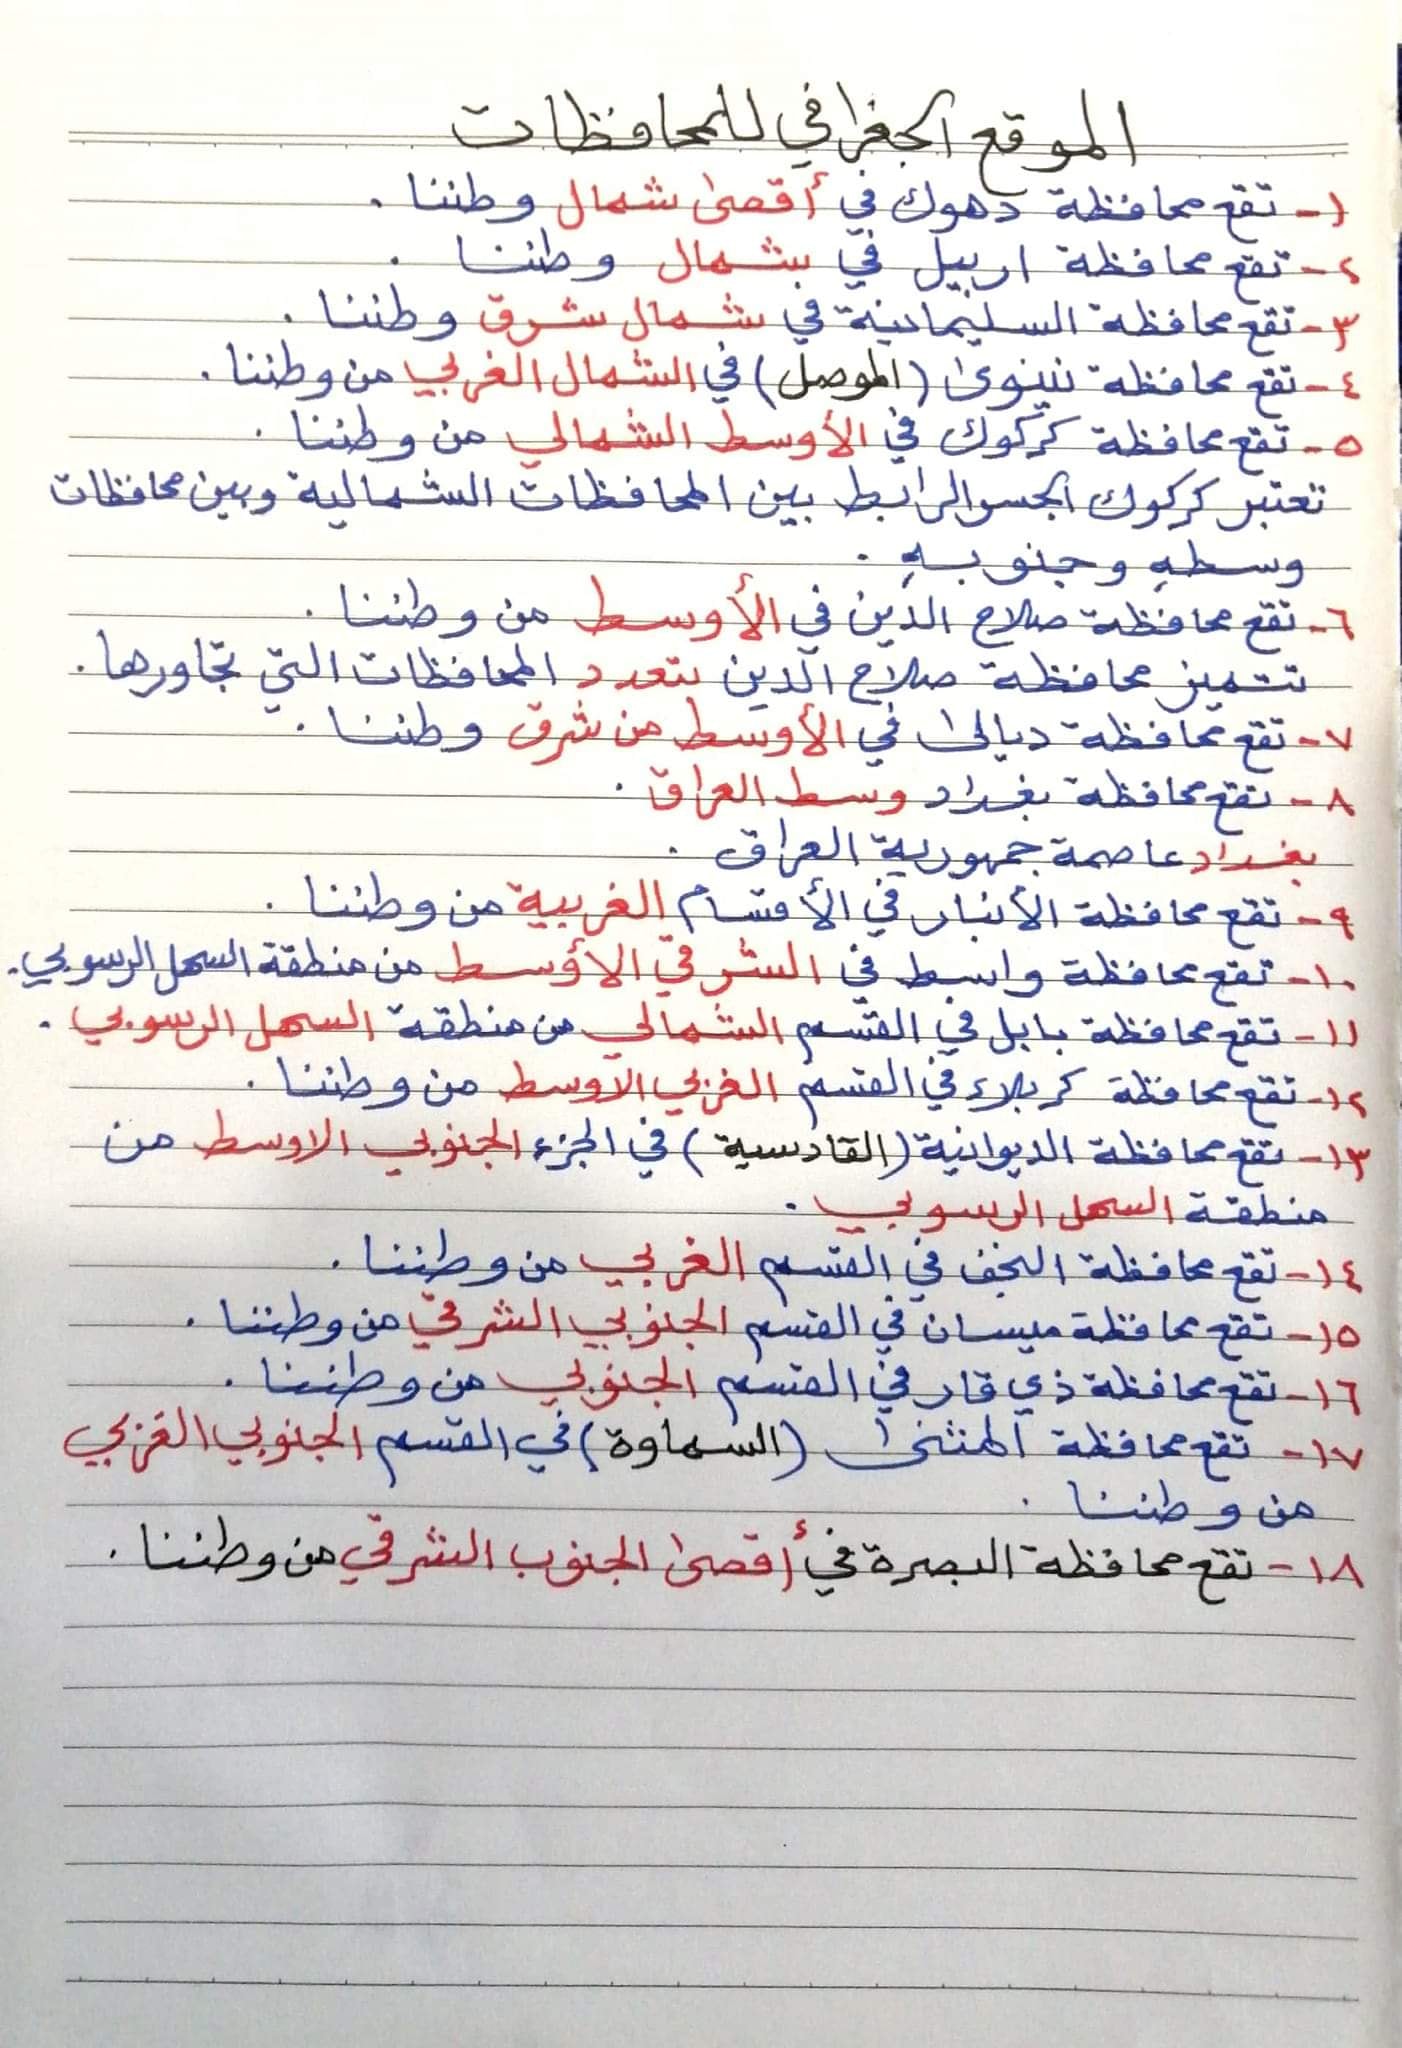 الموقع الجغرافي للمحافظات
١- تقع محافظة دهوك في أقصى شمال وطننا .
٢- تقع محافظة اربيل في شمال وطننا .
٣- تقع محافظة السليمانية في شمال شرق وطننا .
٤- تقع محافظة نينوى (الموصل) في الشمال الغربي من وطننا .
٥- تقع محافظة كركوك في الأوسط الشمالي من وطننا .
تعتبر كركوك الجسر الرابط بين المحافظات الشمالية وبين محافظات
وسطهِ وجنوبهِ .
٦- تقع محافظة صلاح الدين في الأوسط من وطننا .
تتميز محافظة صلاح الدين بتعدد المحافظات التي تجاورها .
٧- تقع محافظة ديالى في الأوسط من شرق وطننا .
٨- تقع محافظة بغداد وسط العراق .
بغداد عاصمة جمهورية العراق .
٩- تقع محافظة الأنبار في الأقسام الغربية من وطننا .
١٠- تقع محافظة واسط في الشرقي الأوسط من منطقة السهل الرسوبي .
١١- تقع محافظة بابل في القسم الشمالي من منطقة السهل الرسوبي .
١٢- تقع محافظة كربلاء في القسم الغربي الاوسط من وطننا .
١٣- تقع محافظة الديوانية (القادسية) في الجزء الجنوبي الاوسط من
منطقة السهل الرسوبي .
١٤- تقع محافظة النجف في القسم الغربي من وطننا .
١٥- تقع محافظة ميسان في القسم الجنوبي الشرقي من وطننا .
١٦- تقع محافظة ذي قار في القسم الجنوبي من وطننا .
١٧- تقع محافظة المثنى (السماوة) في القسم الجنوبي الغربي
من وطننا .
١٨- تقع محافظة البصرة في أقصى الجنوب الشرقي من وطننا .